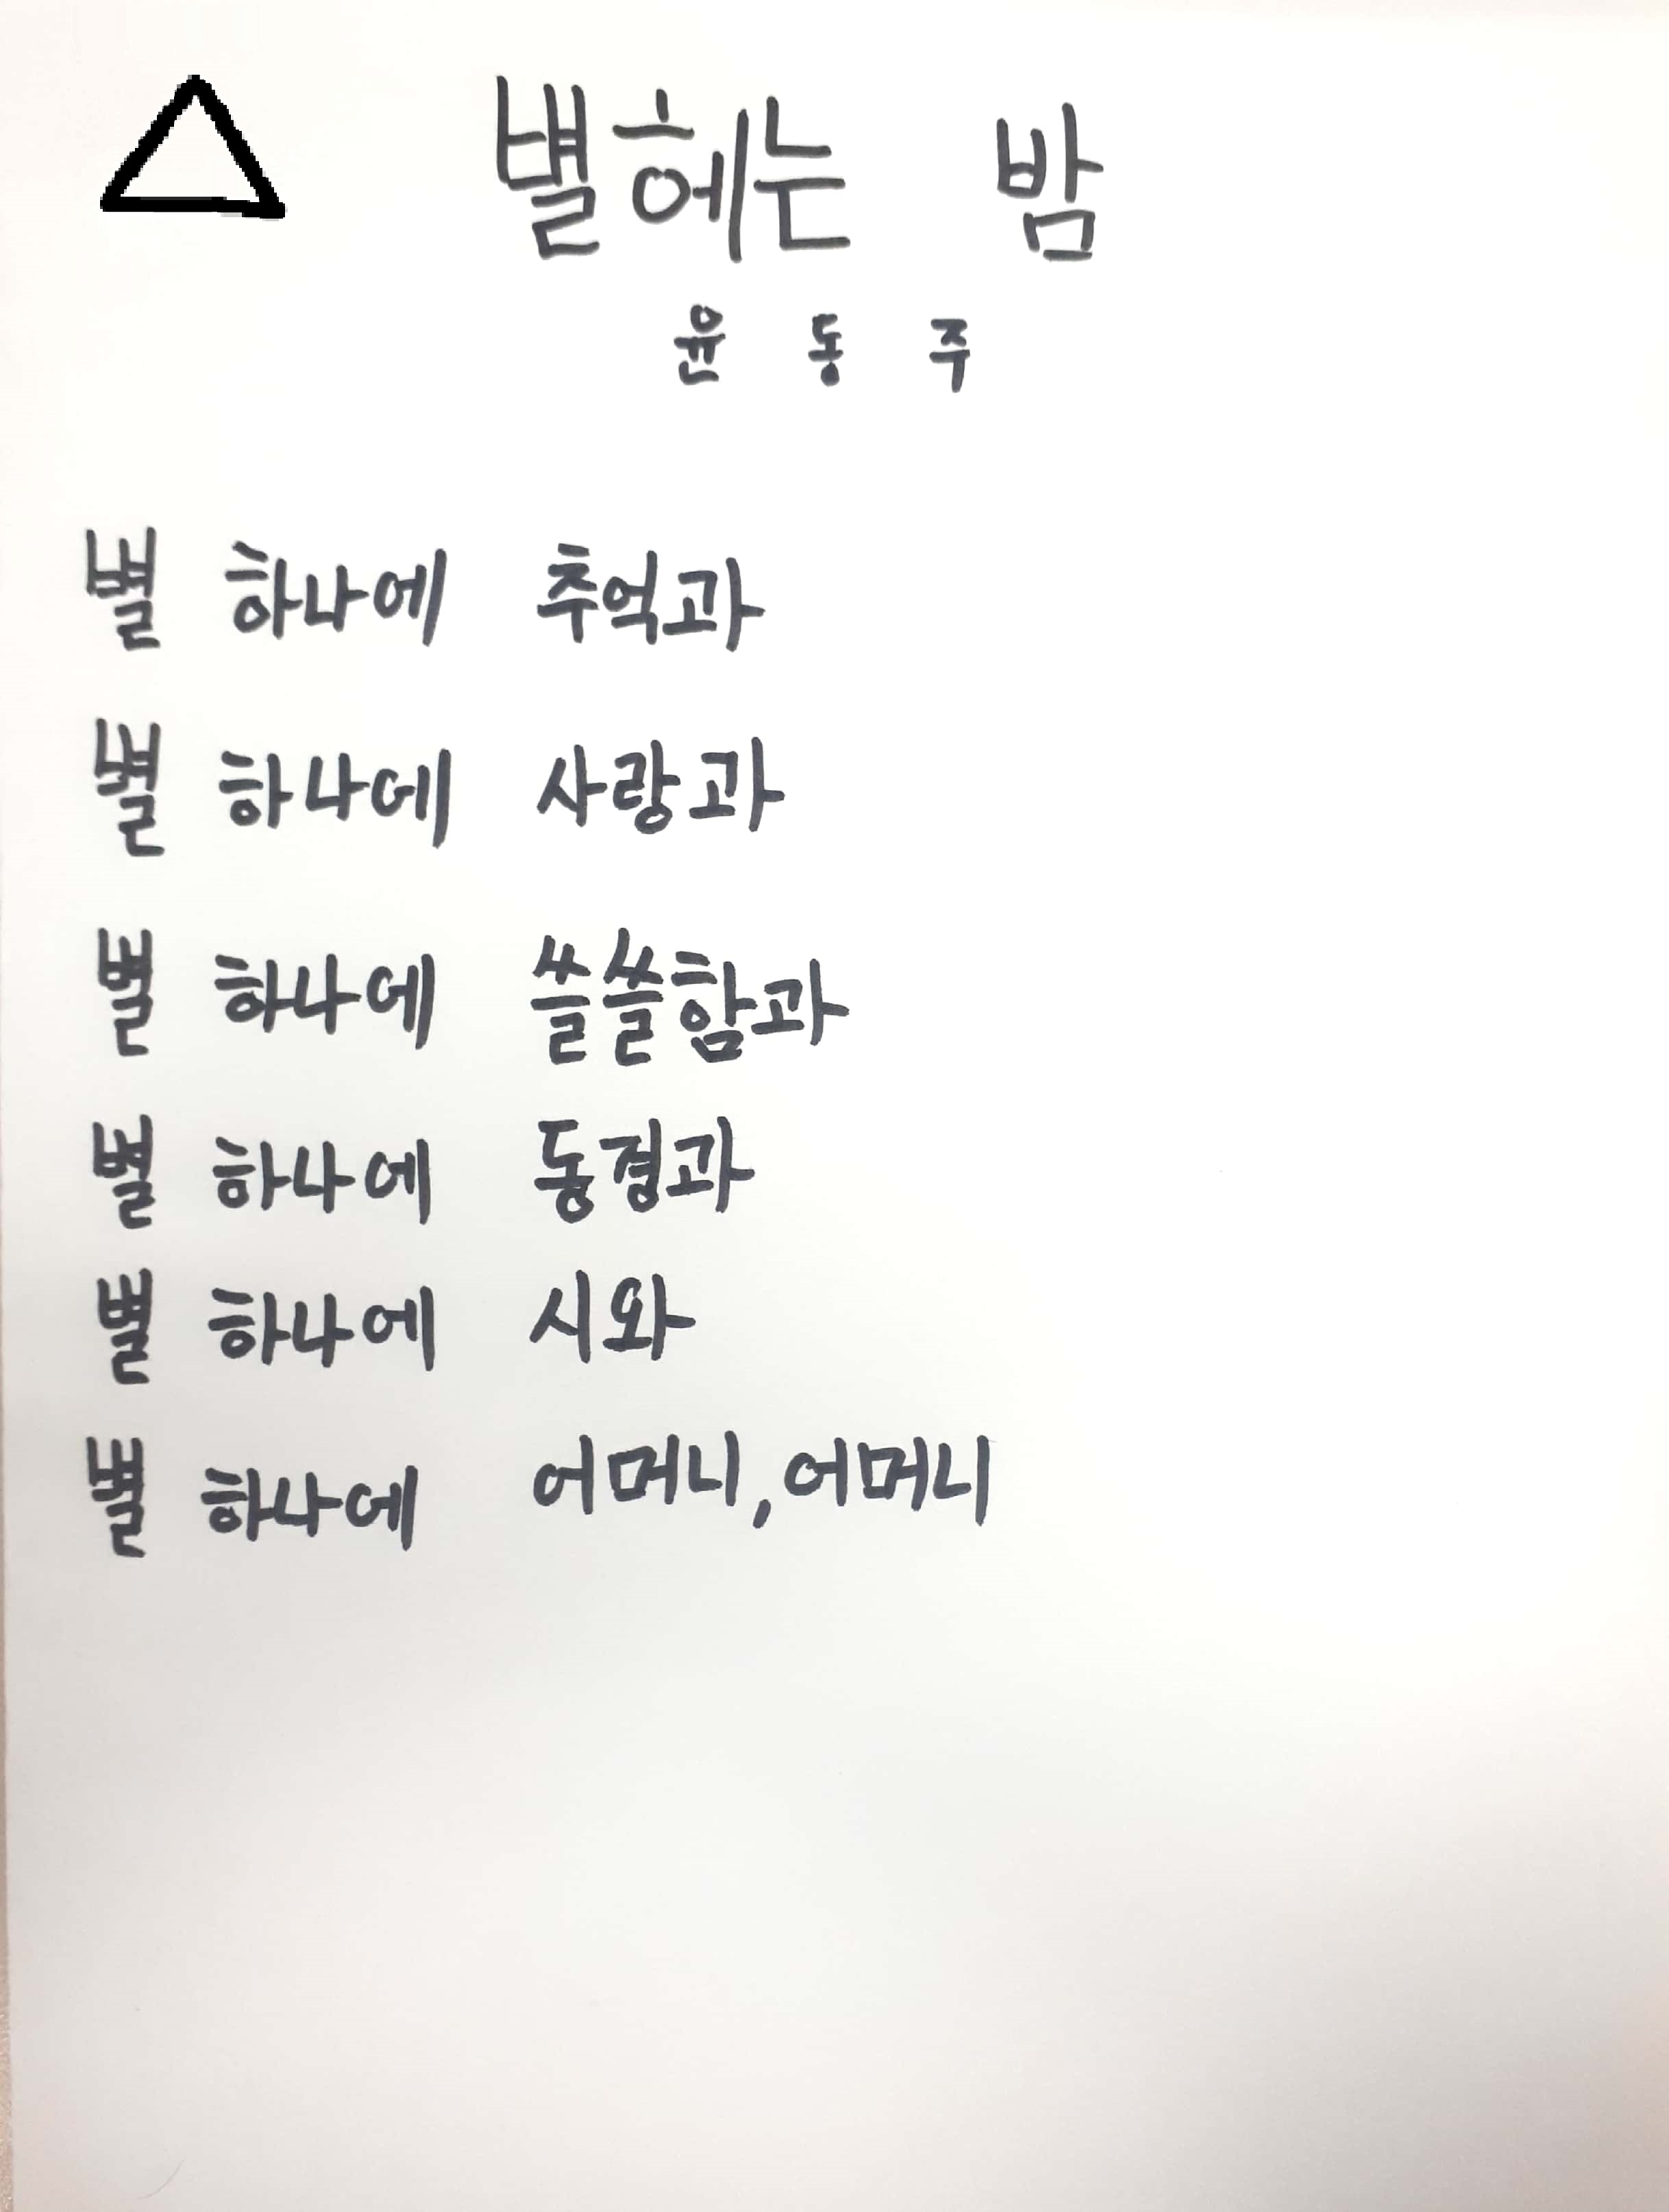 별헤는 밤
윤동주
별 하나에 추억과
별 하나에 사랑과
별 하나에 쓸쓸함과
별 하나에 동경과
별 하나에 시와
별 하나에 어머니, 어머니